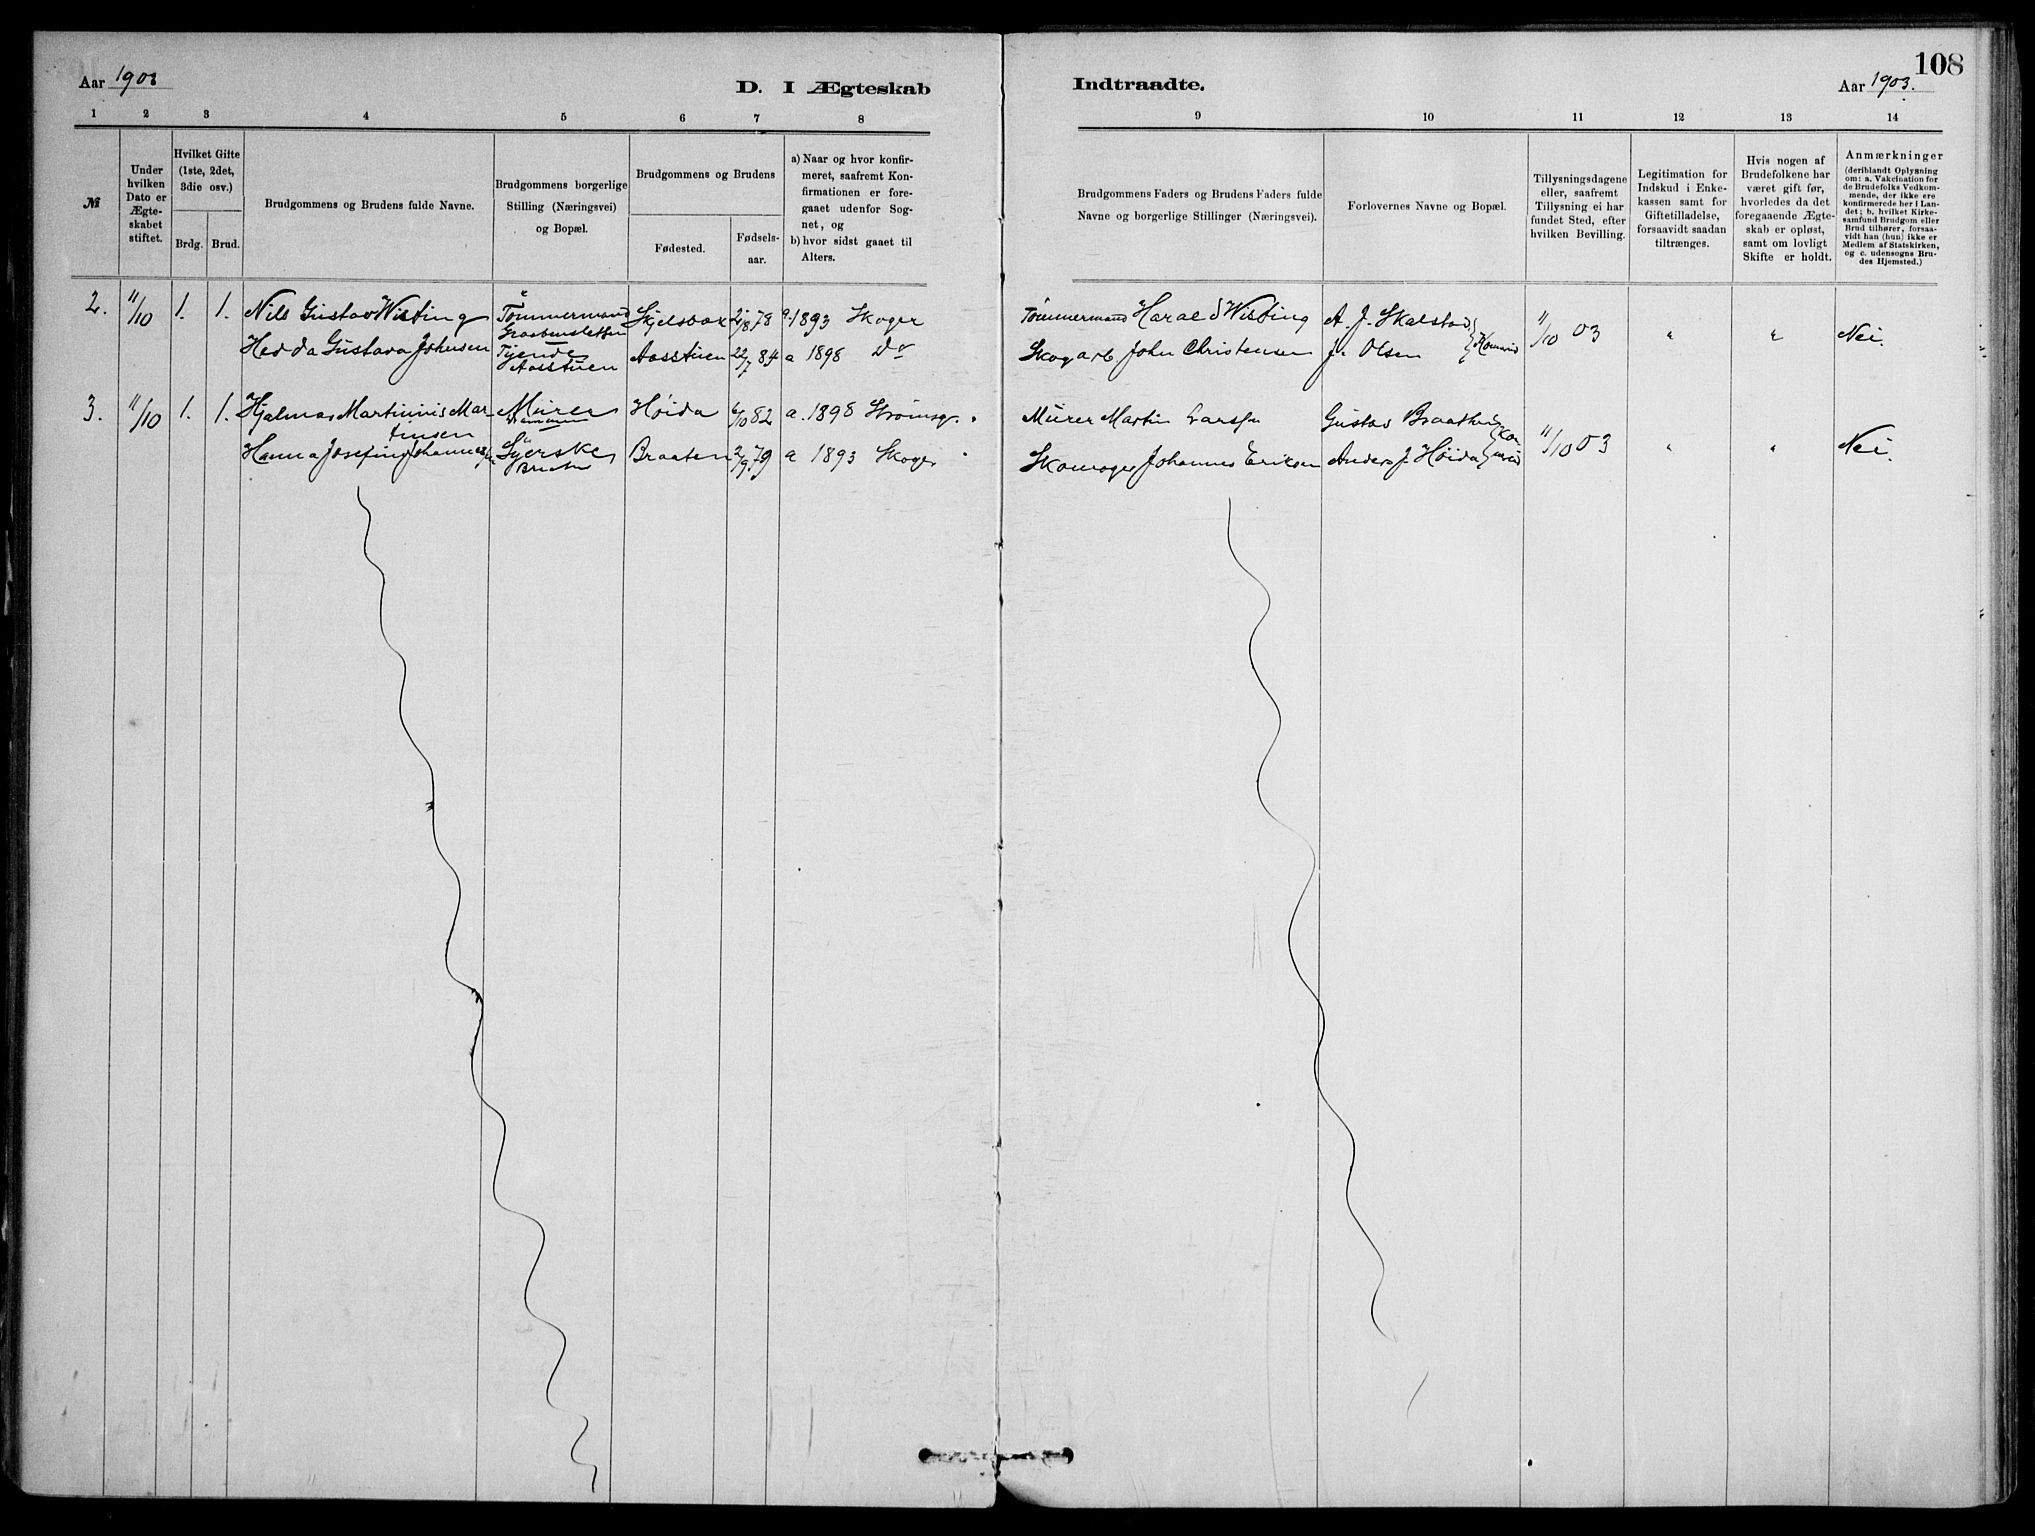 108
Aar 1903 D. I Ægteskab
Indtraadte. Aar 1903.
1 2 3 4 5 6 7 8
9 10 11 12 13 14
№
Under
hvilken
Dato er
Ægte-
skabet
stiftet.
Hvilket Gifte
(1ste, 2det,
3die osv.)
Brdg. Brud.
Brudgommens og Brudens fulde Navne.
Brudgommens borgerlige
Stilling (Næringsvei)
og Bopæl.
Brudgommens og Brudens
Fødested.
Fødsels-
aar.
a) Naar og hvor konfir-
meret, saafremt Kon-
firmationen er fore-
gaaet udenfor Sog-
net, og
b) hvor sidst gaaet til
Alters.
Brudgommens Faders og Brudens Faders fulde
Navne og borgerlige Stillinger (Næringsvei).
Forlovernes Navne og Bopæl.
Tillysningsdagene
eller, saafremt
Tillysning ei har
fundet Sted, efter
hvilken Bevilling.
Legitimation for
Indskud i Enke-
kassen samt for
Giftetilladelse,
forsaavidt saadan
tiltrænges.
Hvis nogen af
Brudefolkene har
været gift før,
hvorledes da det
foregaaende Ægte-
skab er opløst,
samt om lovligt
Skifte er holdt.
Anmærkninger
(deriblandt Oplysning
om: a. Vakcination for
de Brudefolks Vedkom-
mende, der ikke ere
konfirmerede her i Lan-
det; b. hvilket Kirke-
samfund Brudgom eller
Brud tilhører, forsaa-
vidt han (hun) ikke er
Medlem af Statskirken,
og c. udensogns Bru-
des Hjemsted.)
2. 11/10 1. 1. Nils Gustav Wisting Tømmermand Skjelsbæk 2/8 78 a. 1893 Skoger
Hedda Gustava Johnsen Tjende Aasstuen Aasstuen 22/7 84 a 1898 Do
Tømmermand Harald Wisting A. J. Skalstad 11/10 03 " " Nei.
Skogarb. John Christensen J. Olsen
3. 11/10 1. 1. Hjalmar Martinius Mar- Murer Høida 6/10 82 a. 1898 Strømsg.
tinsen
Hanna Josefine Johannes Syerske Braaten 2/9 79 a 1893 Skoger
Murer Martin Larssen Gustav Braathen 11/10 03 " " Nei.
Skomager Johannes Eriksen Anders J. Høida